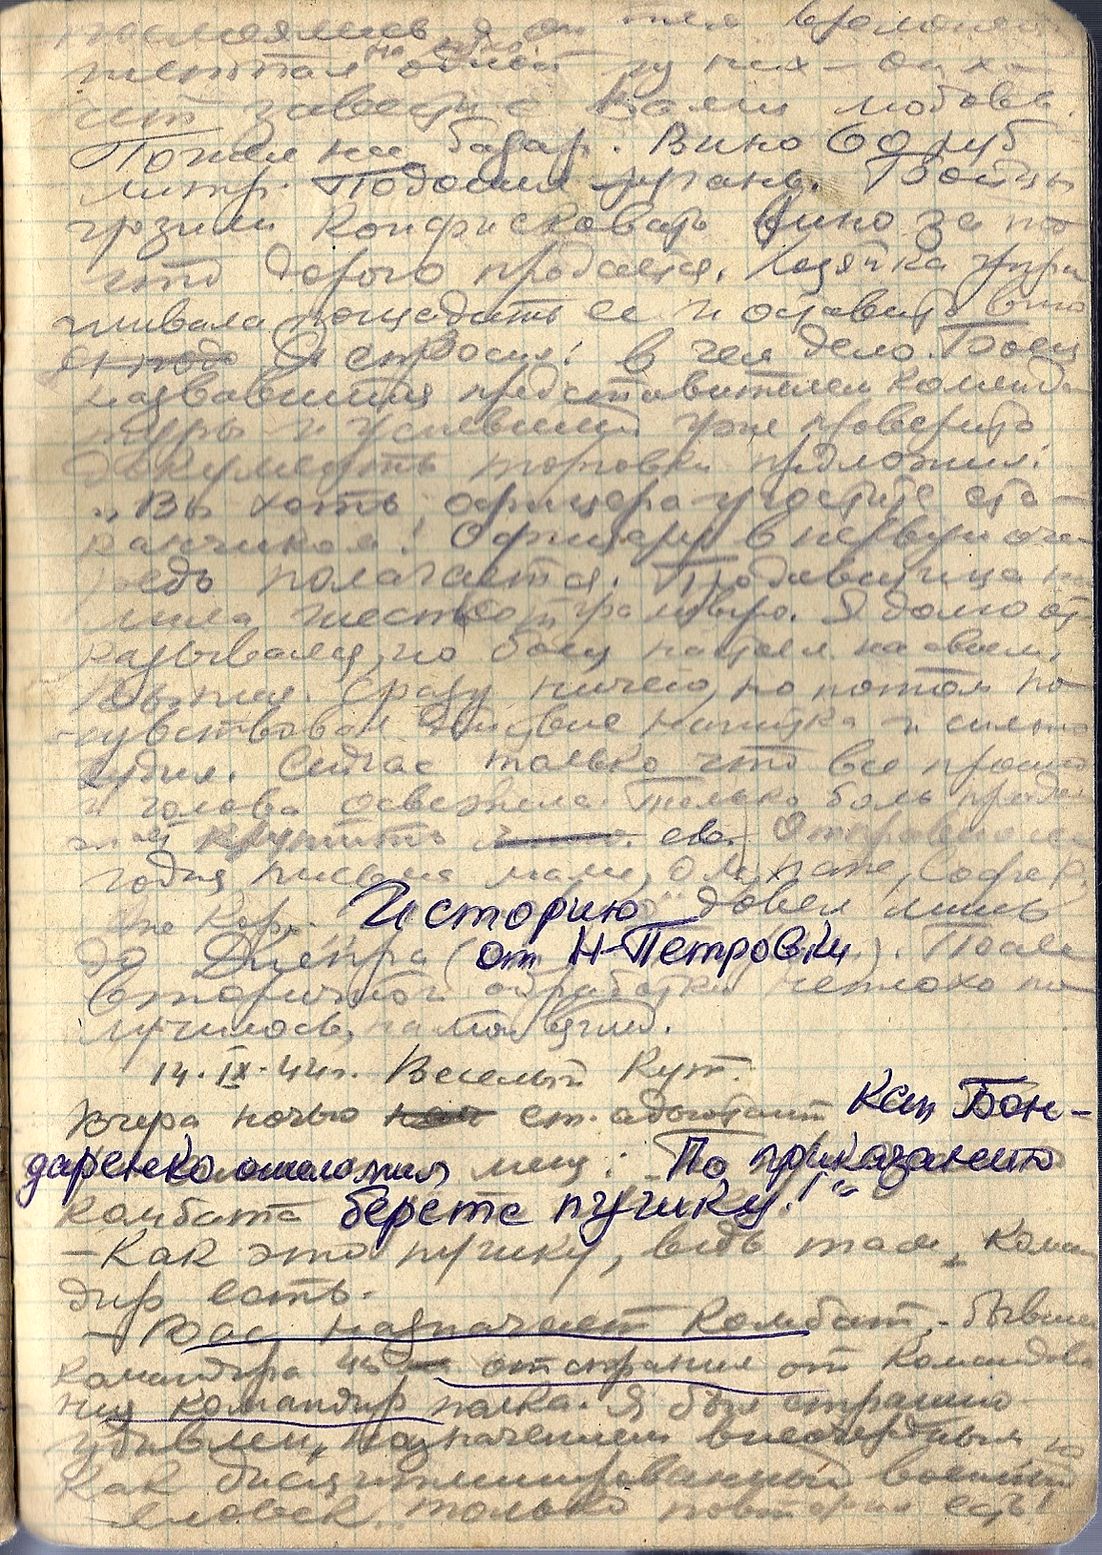 посмеялись, а он тем временем
шептал на ухо одной из них – он хо-
чет завести с Вами любовь.
Пошел на базар. Вино 60 руб
литр. Подошел
грозили конфисковать вино за то
что дорого продается. Хозяйка упра-
шивала пощадить ее и оставить вино
Я спросил: в чем дело. Боец
назвавшийся представителем коменда-
туры и успевший уже проверить
документы торговки предложил:
„Вы хоть офицера угостите ста-
канчиком! Офицеру в первую оче-
редь полагается. Продавщица на-
лила шестьсот грамовую. Я долго от-
казывался, но боец настоял на своем.
Выпил. Сразу ничего, но потом по-
чувствовал действие напитка и сильно
Сейчас только что все прошло
и голова освежела. Только боль продол-
жает крутить ее. Отправил се-
годня письма маме, папе,
Кор. Историю довел лишь
до Днепра (от Н-Петровки). После
вторичной обработки неплохо по-
лучилось, на мой взгляд.
14.IX.44г. Веселый Кут.
Вчера ночью ст. адъютант кап Бон-
даренко ошеломил меня: „По приказанию
комбата берете пушку!"
– Как это пушку, ведь там коман-
дир есть.
– Вас назначает комбат, – бывшего
командира отстранил от командова-
ния командир полка. Я был страшно
удивлен назначением внеочередным и
как дисциплинированный военный
человек только повторил есть!